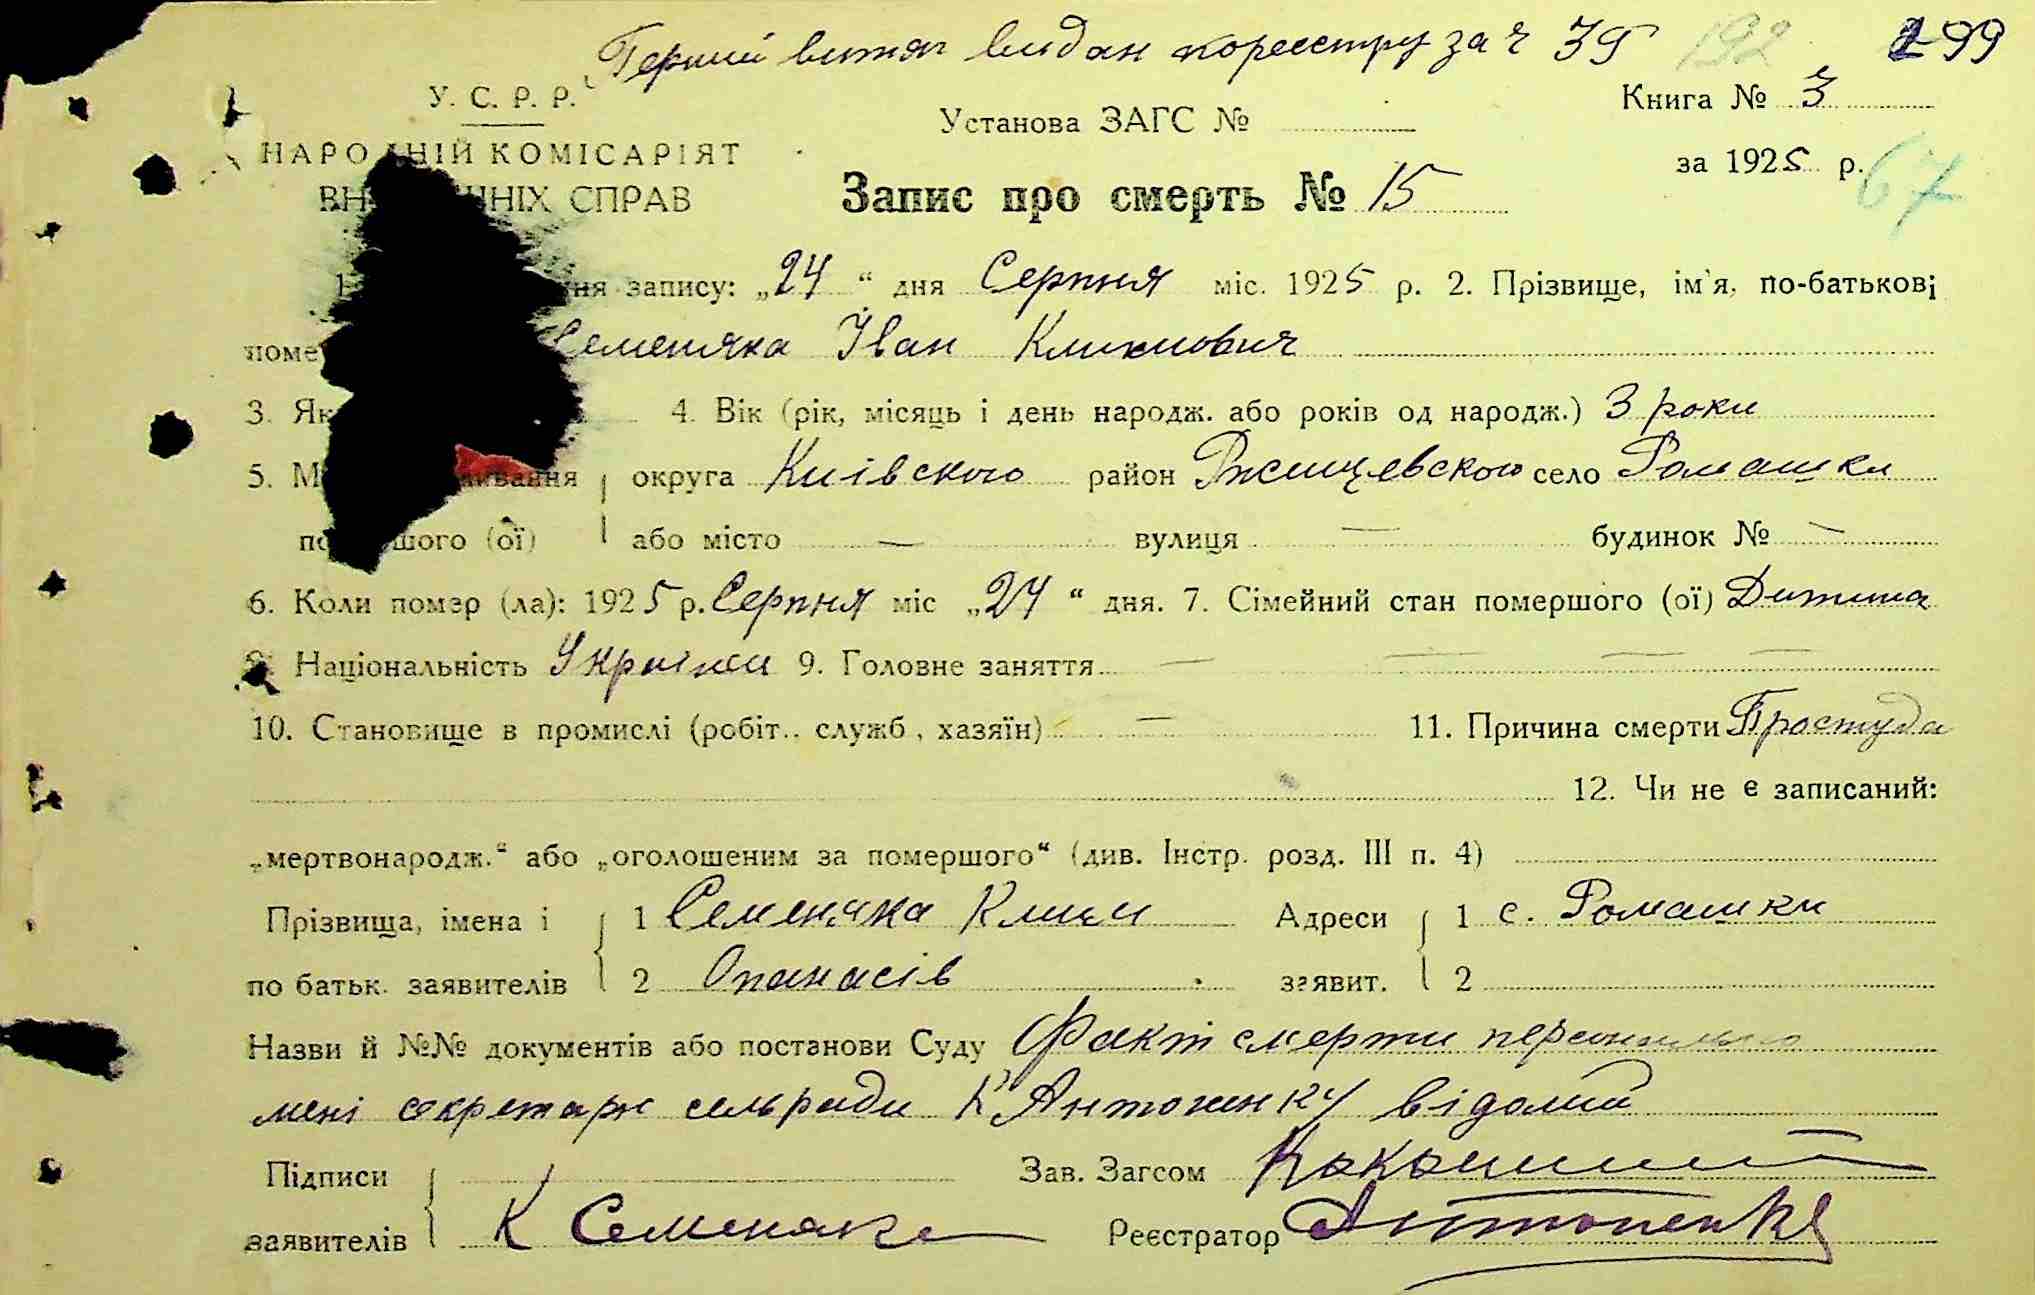 Перший витяг видан по реестру за ч 39 192 299
У. С. Р. Р.
Установа ЗАГС №
Книга № 3
НАРОДНІЙ КОМІСАРІЯТ
ВН ШНІХ СПРАВ
за 1925 р. 67
Запис про смерть № 15
1. ння запису: „24“ дня Серпня міс. 1925 р. 2. Прізвище, ім'я, по-батькові
поме Семеняка Іван Климович
3. Як 4. Вік (рік, місяць і день народж. або років од народж.) 3 роки
5. М вання округа Київского район Ржищевского село Ромашки
по шого (ої) або місто — вулиця — будинок № —
6. Коли помэр (ла): 1925 р. Серпня міс „24“ дня. 7. Сімейний стан помершого (ої) Дитина
8. Національність 9. Головне заняття — — — —
10. Становище в промислі (робіт., служб, хазяїн) — 11. Причина смерти Простуда
12. Чи не є записаний:
„мертвонародж.“ або „оголошеним за помершого“ (див. Інстр. розд. III п. 4)
Прізвища, імена і 1 Семеняка Клим Адреси 1 с. Ромашки
по батьк. заявителів 2 Опанасів заявит. 2
Назви й №№ документів або постанови Суду Факт смерти персонально
мені секретарю сельради К Антоненку відомий
Підписи Зав. Загсом
заявителів К Семеняка Реєстратор Антоненко